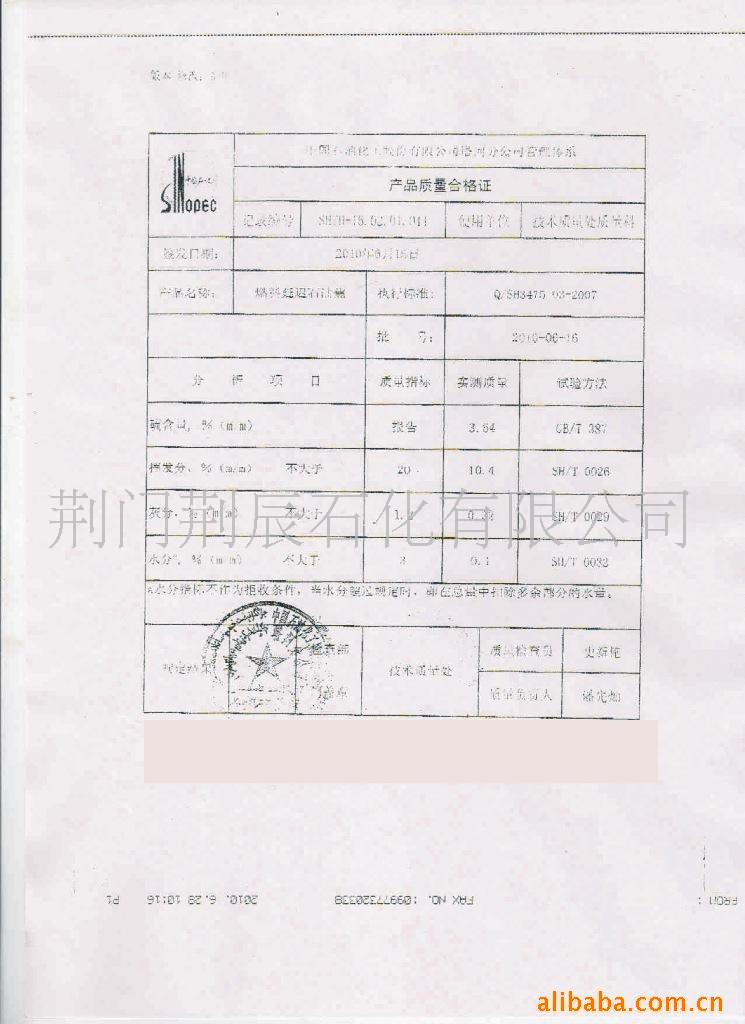 版本 修改:
中国石油化工股份有限公司塔河分公司管理体系
中国石化
SINOPEC
产品质量合格证
记录编号 SH/H-16.02.01.041 使用单位 技术质量处质管科
签发日期: 2010年6月16日
产品名称: 燃料延迟石油焦 执行标准: Q/SH3475 03-2007
批 号: 2010-06-16
分 析 项 目 质量指标 实测质量 试验方法
硫含量, % (m/m) 报告 3.64 GB/T 387
挥发分, % (m/m) 不大于 20 10.4 SH/T 0026
荆门荆辰石化有限公司
灰分, % (m/m) 不大于 SH/T 0029
水分, % (m/m) 不大于 3 0.1 SH/T 0032
水分指标不作为拒收条件, 当水分超过规定时, 即在总量中扣除多余部分的水量。
判定结果 技术质量处 质量检查员
质量负责人
FROM : FAX NO. :09977320339 2010. 6.28 10:16 P1
alibaba.com.cn